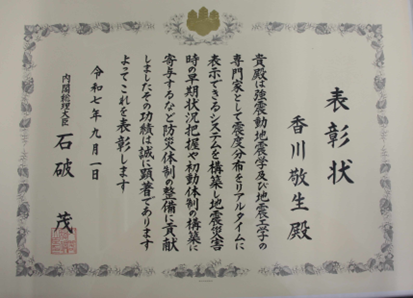 表彰状
香川敬生殿
貴殿は強震動地震学及び地震工学の
専門家として震度分布をリアルタイムに
表示できるシステムを構築し地震災害
時の早期状況把握や初動体制の構築に
寄与するなど防災体制の整備に貢献
しましたその功績は誠に顕著であります
よってこれを表彰します
令和七年九月一日
内閣総理大臣 石破茂